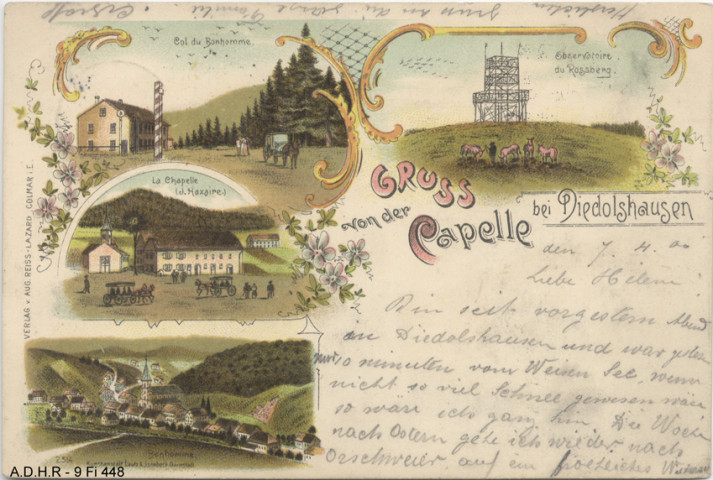 Col du Bonhomme
Observatoire
du Rossberg.
La Chapelle
(J. Haxaire)
GRUSS
von der
Capelle
bei Diedolshausen
den 7. 4. 00
Liebe Helene
Bin seit vorgestern Abend
in Diedolshausen und war gestern
nur 10 minuten vom Weisen See. wenn
nicht so viel Schnee gewesen wär
so wäre ich ganz hin Die Woche
nach Ostern gehe ich wieder nach
Orschweier auf ein fröhliches
VERLAG v. AUG. REISS-LAZARD COLMAR i. E.
Bonhomme
2516
A.D.H.R - 9 Fi 448